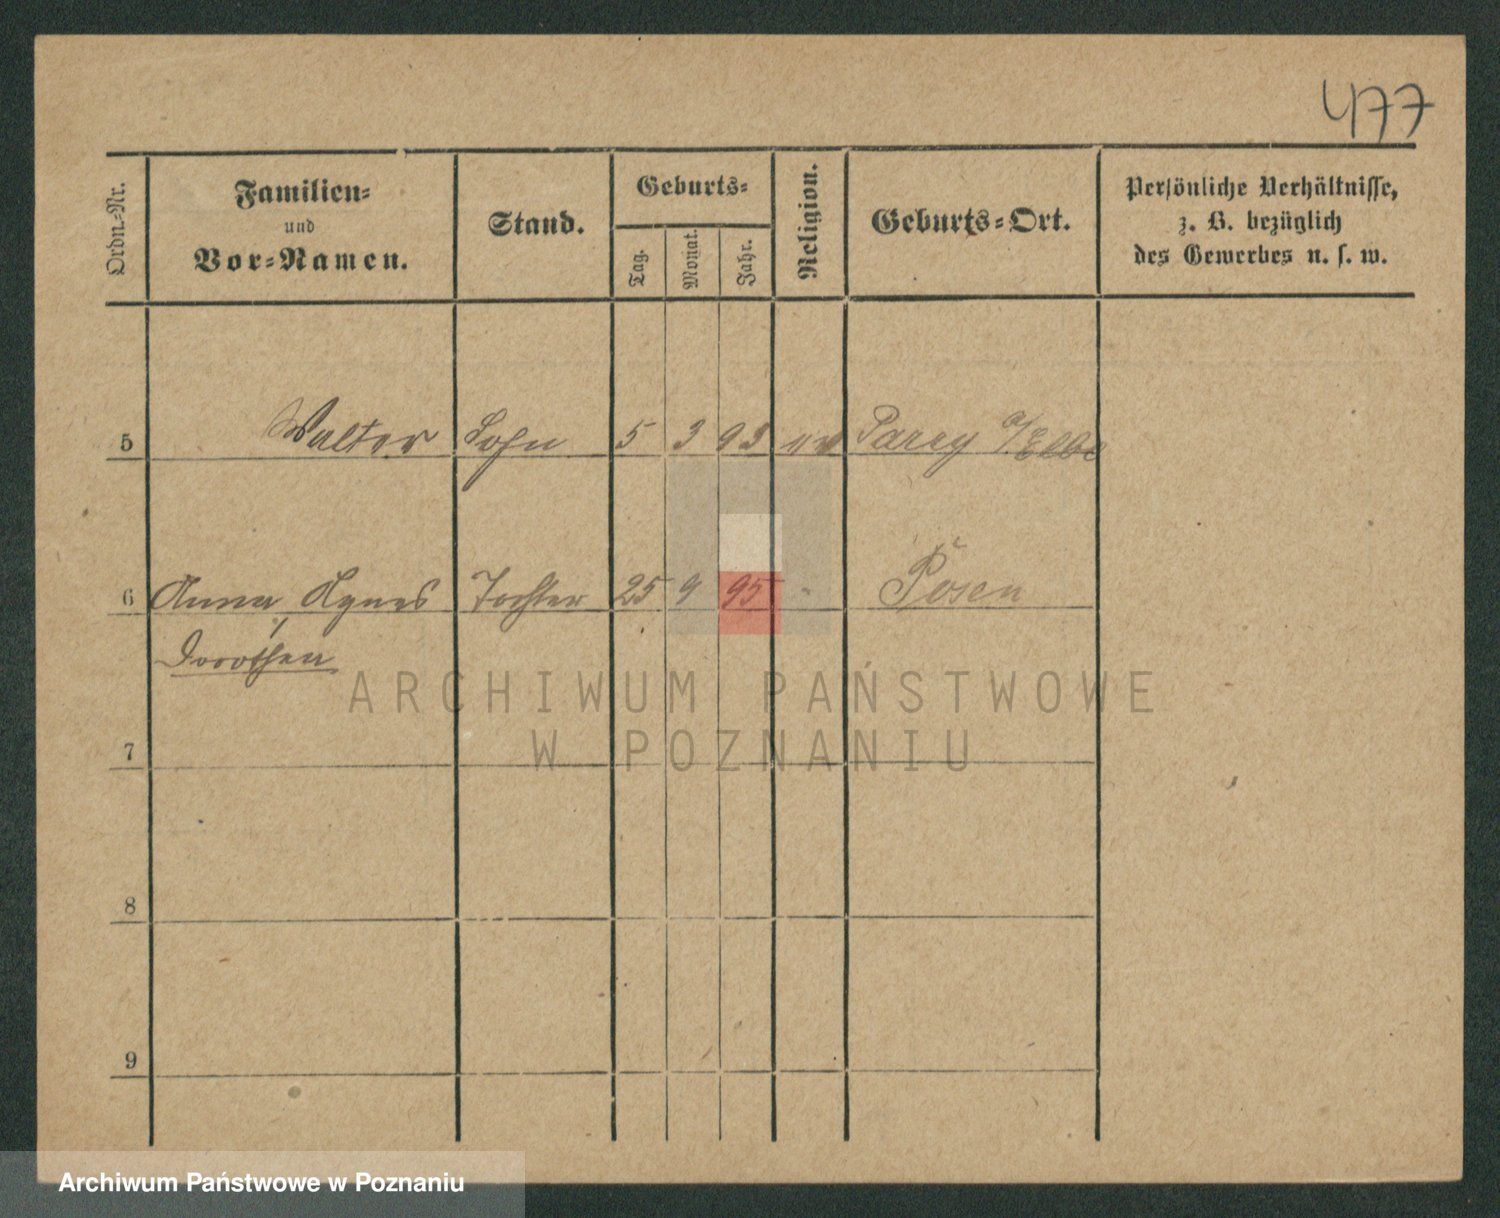 477
Ordn.-Nr.
Familien-
und
Vor-Namen.
Stand.
Geburts-
Tag.
Monat.
Jahr.
Religion.
Geburts-Ort.
Persönliche Verhältnisse,
z. B. bezüglich
des Gewerbes u. s. w.
5 Walter Sohn 5 3 93 ev Parey a/Elbe
6 Anna Agnes Tochter 25 9 95 " Posen
Dorothea
7
8
9
ARCHIWUM PAŃSTWOWE
W POZNANIU
Archiwum Państwowe w Poznaniu